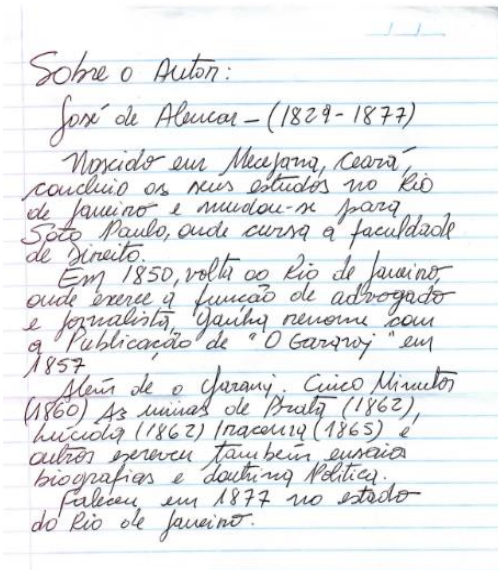 Sobre o Autor:
José de Alencar - (1829-1877)
Nascido em Mecejana, Ceará,
concluio os seus estudos no Rio
de janeiro e mudou-se para
São Paulo, onde cursa a faculdade
de Direito.
Em 1850, volta ao Rio de janeiro
onde exerce a função de advogado
e jornalista, ganha renome com
a Publicação de "O Garanj" em
1857
Além de o Garanj. Cinco Minutos
(1860) As minas de Prata (1862),
Lucíola (1862) Iracema (1865) e
outros escreveu também ensaios
biografias e doutrina Política.
Faleceu em 1877 no estado
do Rio de janeiro.